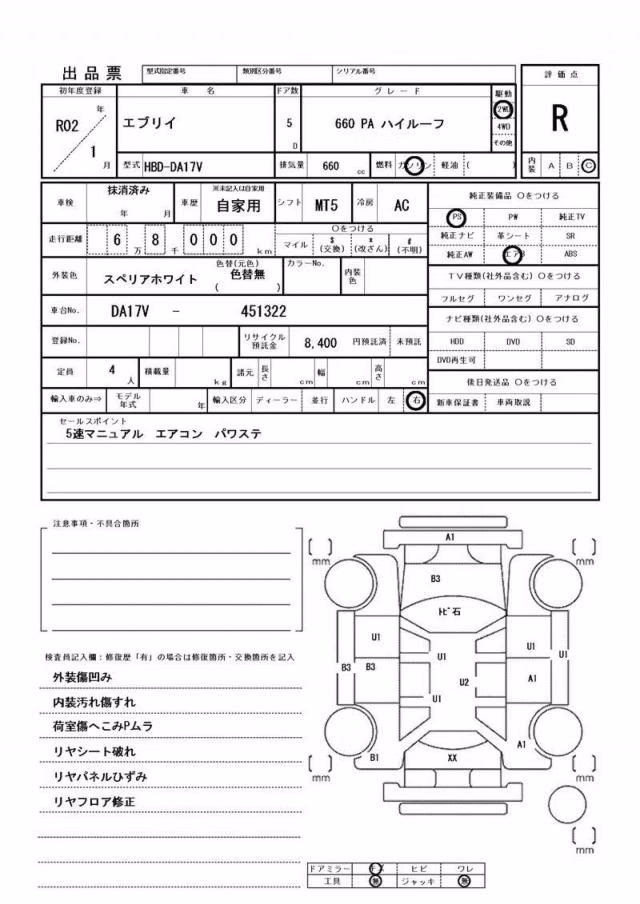 出品票 型式指定番号 類別区分番号 シリアル番号 評価点
初年度登録 車名 ドア数 グレード 駆動
R02 年 エブリイ 5 D 660 PA ハイルーフ 2WD R
1 月 4WD
その他
型式 HBD-DA17V 排気量 660 cc 燃料 ガソリン 軽油 ( ) 内装 A B C
車検 抹消済み 年 月 車歴 ※未記入は自家用 自家用 シフト MT5 冷房 AC 純正装備品 ○をつける
PS PW 純正TV
走行距離 6 万 8 千 0 0 0 km ○をつける
マイル $(交換) x(改ざん) #(不明)
純正ナビ 革シート SR
純正AW エアB ABS
外装色 スペリアホワイト 色替(元色) 色替無 ( ) カラーNo. 内装色
TV種類(社外品含む) ○をつける
フルセグ ワンセグ アナログ
車台No. DA17V - 451322
ナビ種類(社外品含む) ○をつける
登録No. リサイクル預託金 8,400 円預託済 未預託
HDD DVD SD
DVD再生可
定員 4 人 積載量 kg 諸元 長さ cm 幅 cm 高さ cm
後日発送品 ○をつける
輸入車のみ⇒ モデル年式 年 輸入区分 ディーラー 並行 ハンドル 左 右
新車保証書 車両取説
セールスポイント
5速マニュアル エアコン パワステ
注意事項・不具合箇所
検査員記入欄:修復歴「有」の場合は修復箇所・交換箇所を記入
外装傷凹み
内装汚れ傷すれ
荷室傷へこみPムラ
リヤシート破れ
リヤパネルひずみ
リヤフロア修正
A1
[ ] mm
[ ] mm
B3
トビ石
U1 U1 U1
B3 B3 U1
U2 A1
U1
A1
B1 XX
[ ] mm
[ ] mm
[ ] mm
ドアミラー ヒビ ワレ
工具 無 ジャッキ 無